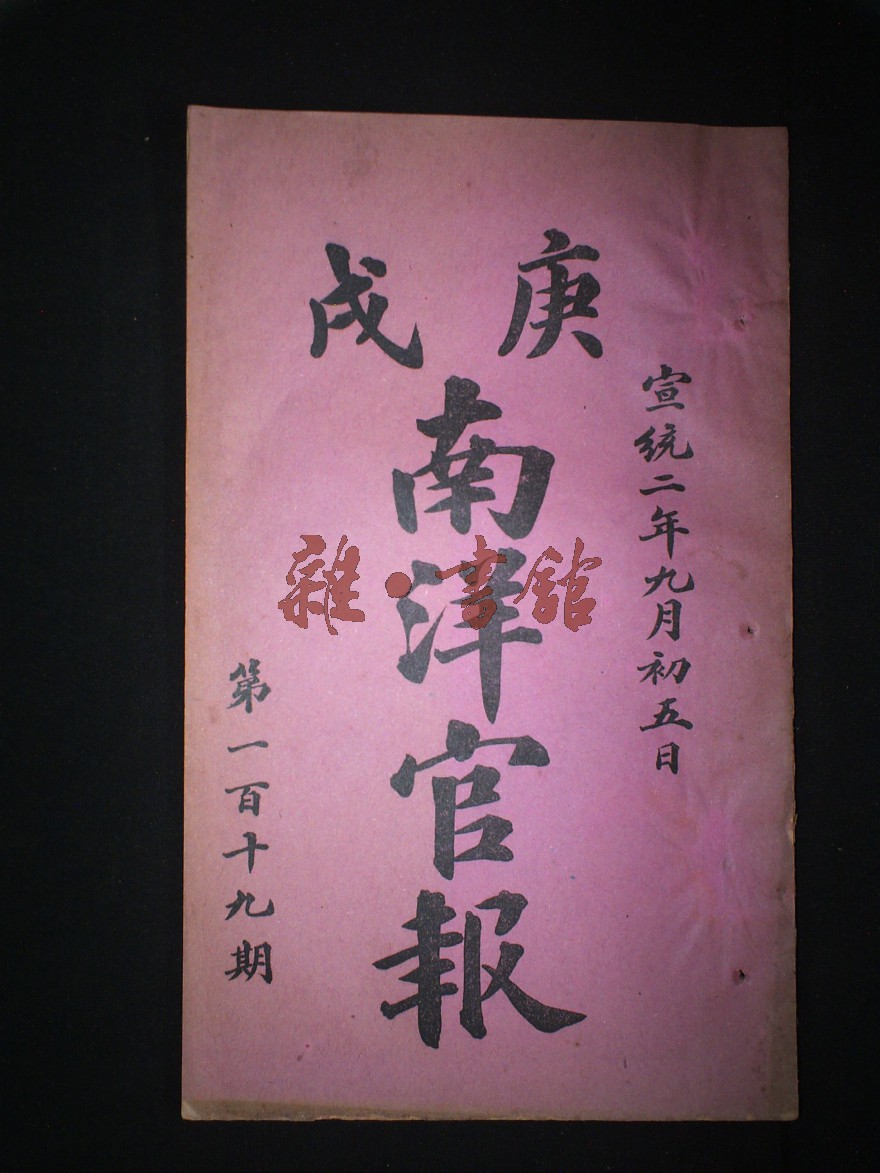 庚戌
宣統二年九月初五日
南洋官報
第一百十九期
雜·書館